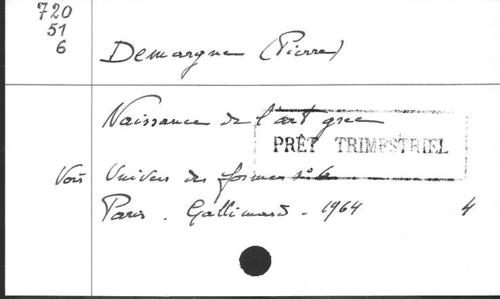 720
51
6
Demargne (Pierre)
Naissance de l'art grec
PRÊT TRIMESTRIEL
Voir Univers des formes n° 6
Paris. Gallimard. 1964 4